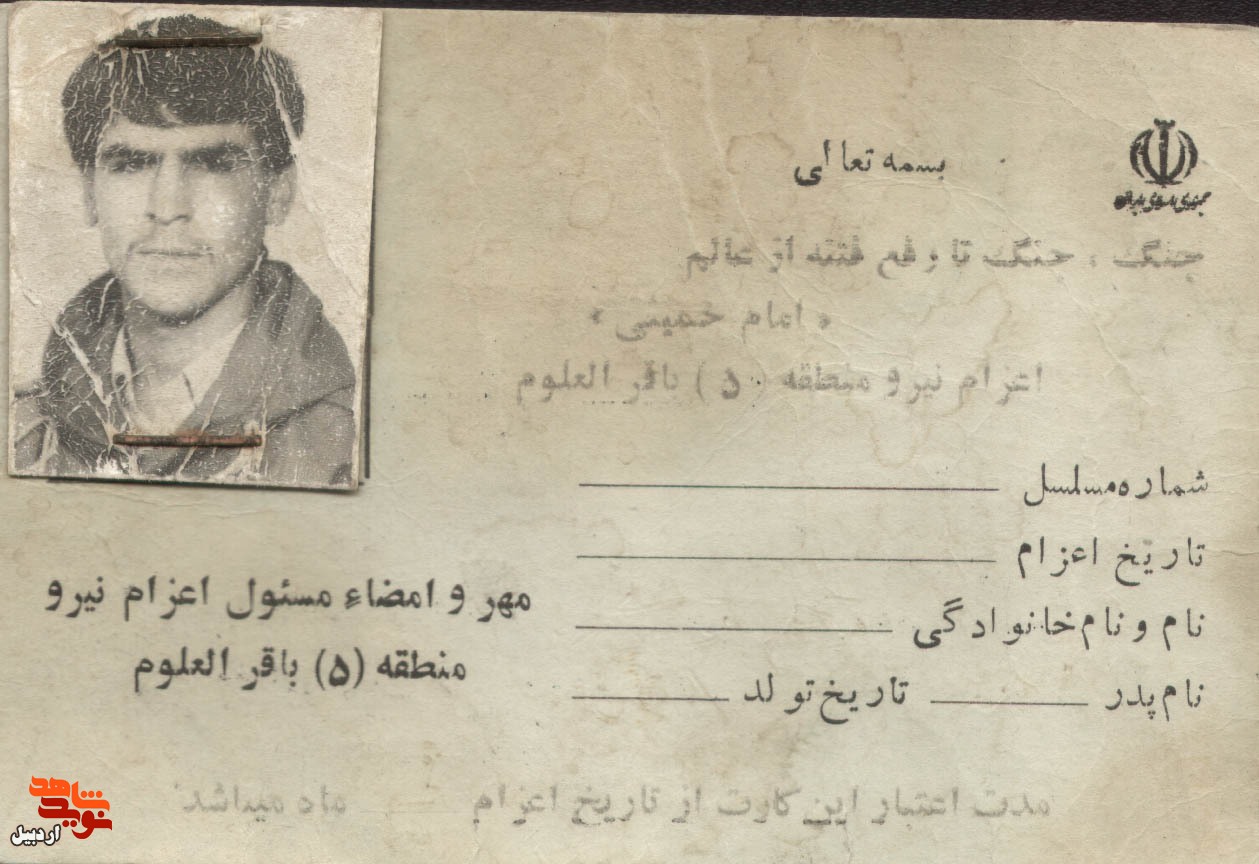 بسمه تعالی
جمهوری اسلامی ایران
جنگ ، جنگ تا رفع فتنه از عالم
« امام خمینی »
اعزام نیرو منطقه ( ۵ ) باقر العلوم
شماره مسلسل
تاریخ اعزام
نام و نام خانوادگی
نام پدر تاریخ تولد
مهر و امضاء مسئول اعزام نیرو
منطقه (۵) باقر العلوم
مدت اعتبار این کارت از تاریخ اعزام ماه میباشد
نوید شاهد
اردبیل